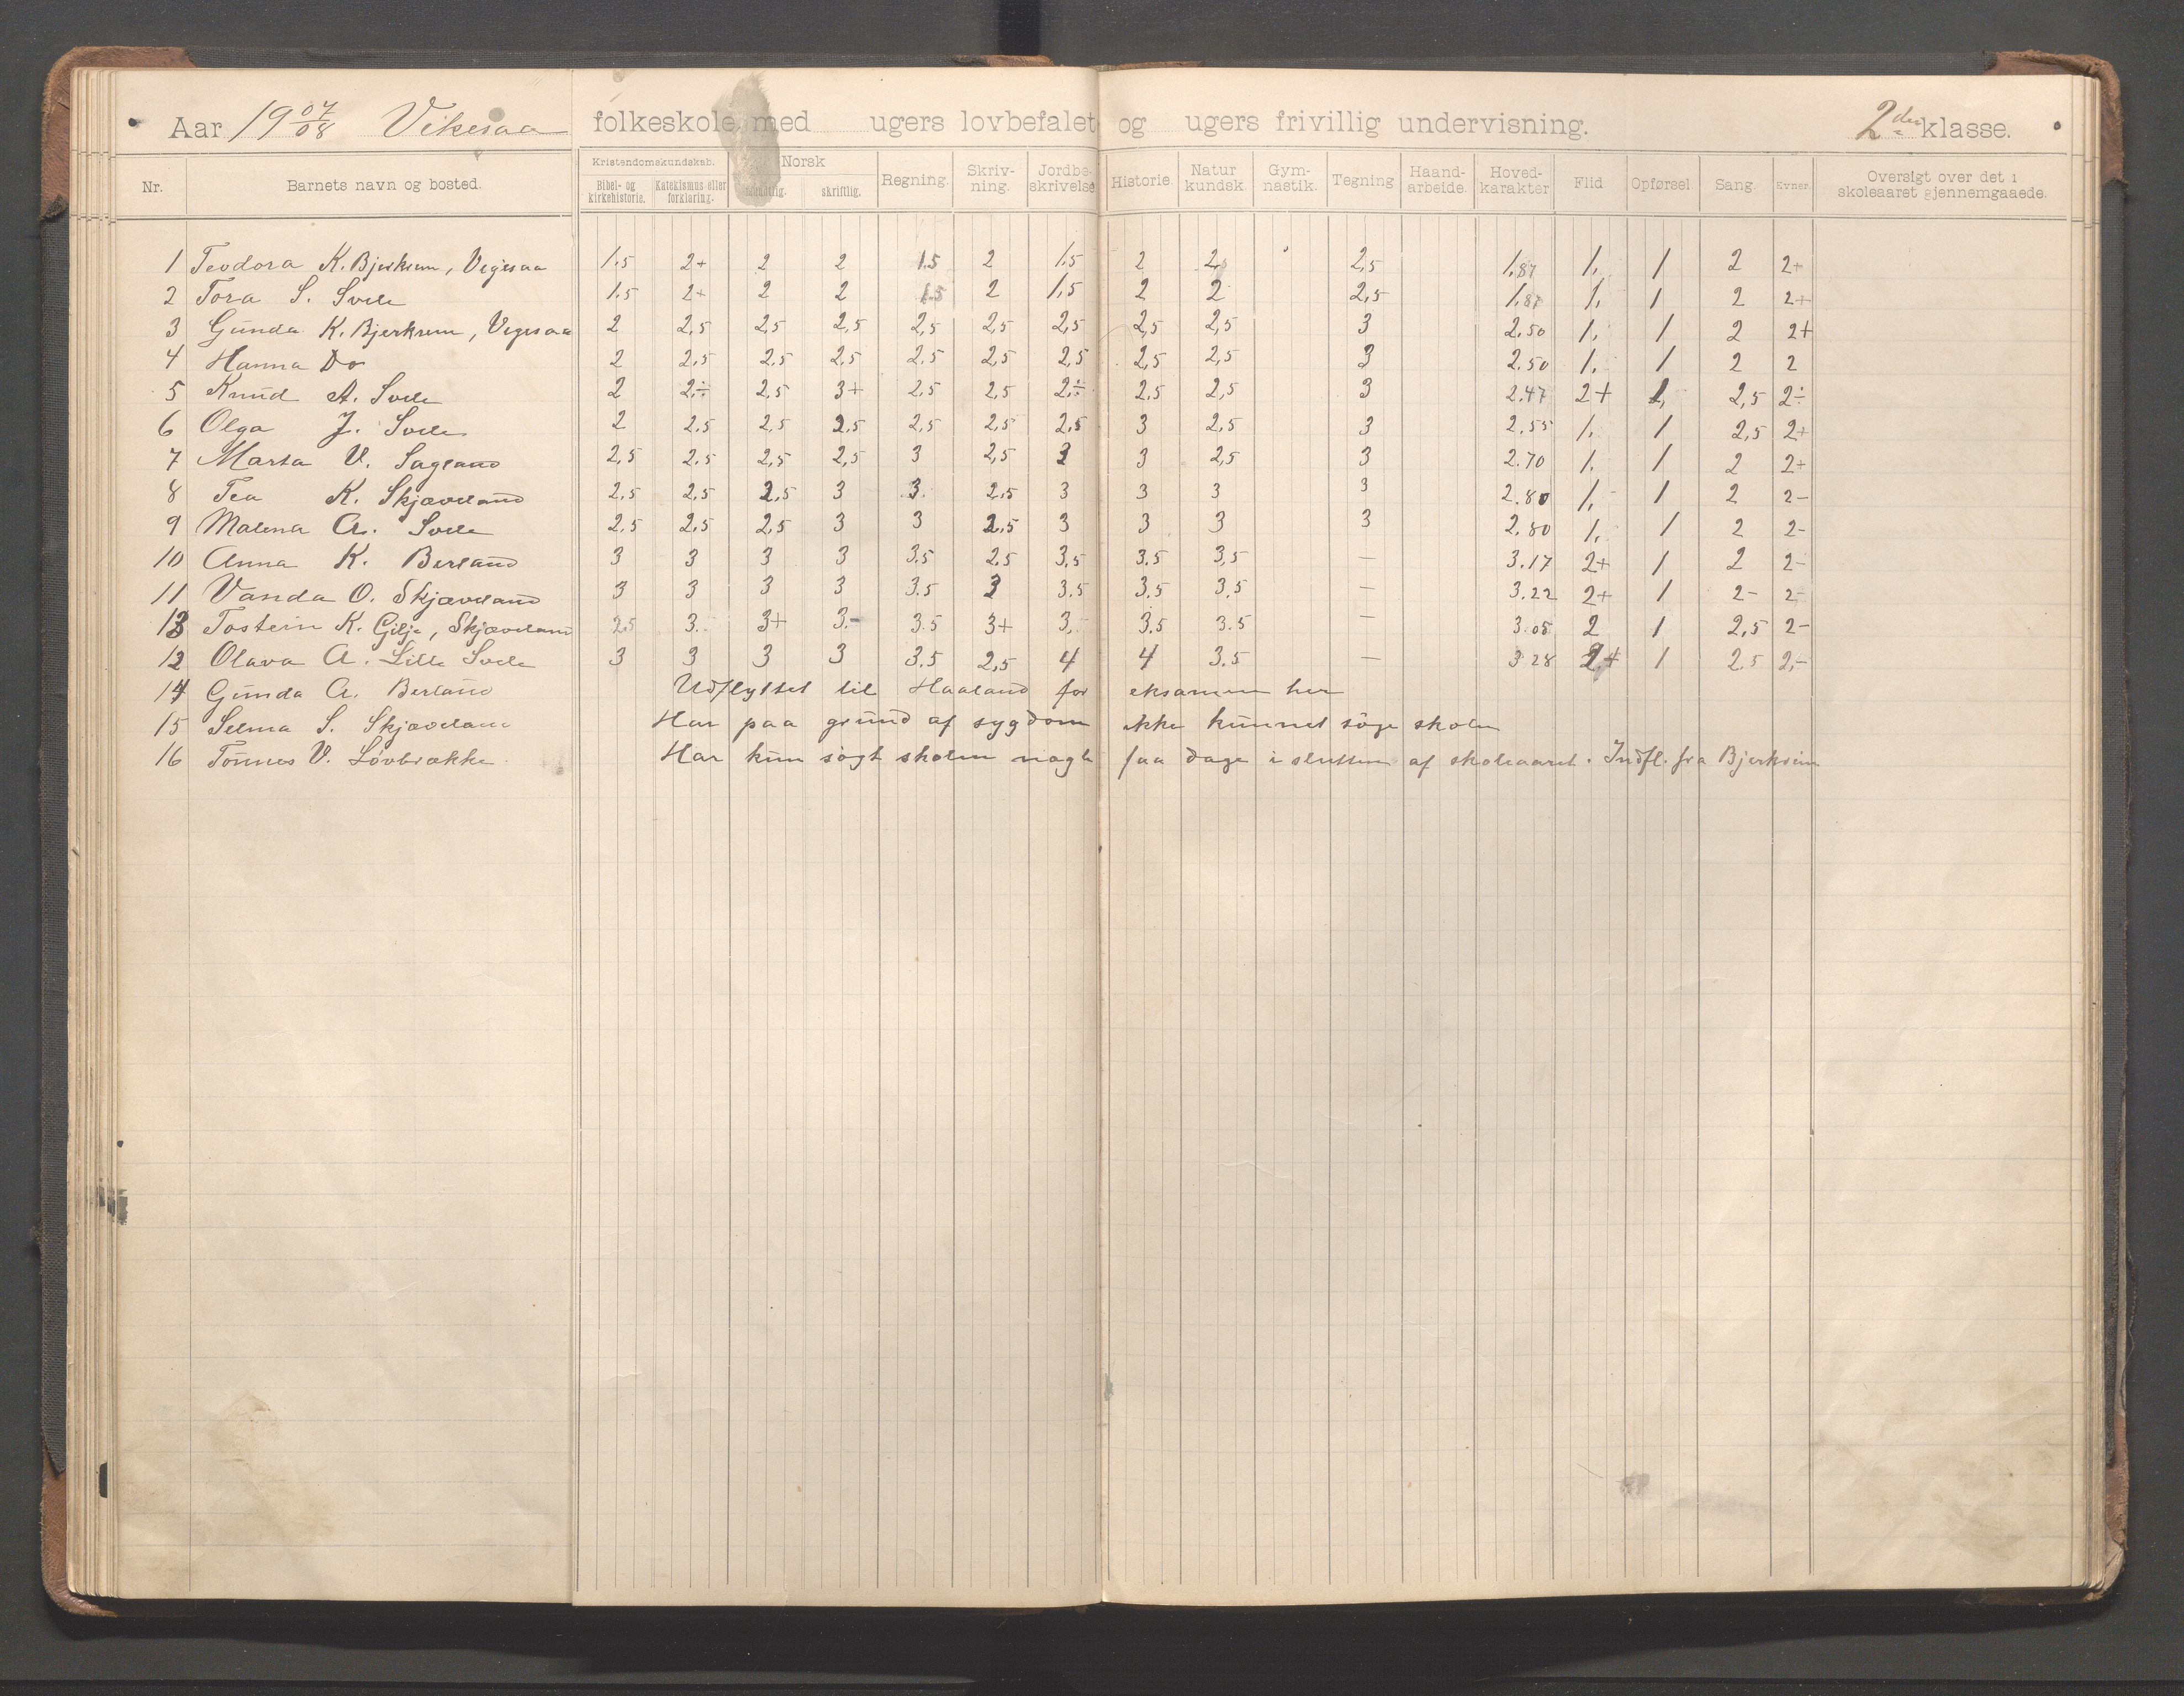 Aar 19 07/08 Vikesaa folkeskole med ugers lovbefalet og ugers frivillig undervisning. 2den klasse.
Nr. Barnets navn og bosted. Kristendomskundskab. Bibel- og kirkehistorie. Katekismus eller forklaring. Norsk mundtlig. skriftlig. Regning. Skriv-ning. Jordbe-skrivelse Historie. Natur kundsk. Gym-nastik. Tegning Haand-arbeide. Hoved-karakter Flid Opførsel Sang. Evner. Oversigt over det i skoleaaret gjennemgaaede.
1 Teodora K. Bjerkrem, Vigesaa 1.5 2+ 2 2 1.5 2 1.5 2 2 2,5 1.87 1, 1 2 2+
2 Tora S. Svele 1.5 2+ 2 2 1.5 2 1,5 2 2 2,5 1.87 1, 1 2 2+
3 Gunda K. Bjerkrem, Vigesaa 2 2,5 2,5 2,5 2,5 2,5 2,5 2,5 2,5 3 2.50 1, 1 2 2+
4 Hanna Do 2 2,5 2,5 2,5 2,5 2,5 2,5 2,5 2,5 3 2.50 1, 1 2 2
5 Knud A. Svele 2 2÷ 2,5 3+ 2,5 2,5 2÷ 2,5 2,5 3 2.47 2+ 1, 2,5 2÷
6 Olga J. Svele 2 2.5 2,5 2.5 2,5 2,5 2,5 3 2,5 3 2.55 1, 1 2,5 2+
7 Marta V. Sagland 2,5 2.5 2,5 2,5 3 2,5 3 3 2,5 3 2.70 1, 1 2 2+
8 Tea K. Skjæveland 2,5 2,5 2,5 3 3 2,5 3 3 3 3 2.80 1, 1 2 2-
9 Malena A. Svele 2.5 2,5 2,5 3 3 2,5 3 3 3 3 2.80 1, 1 2 2-
10 Anna K. Berland 3 3 3 3 3.5 2.5 3,5 3.5 3,5 — 3.17 2+ 1 2 2-
11 Vanda O. Skjæveland 3 3 3 3 3.5 3 3.5 3.5 3,5 — 3.22 2+ 1 2- 2-
13 Tostein K. Gilje, Skjæveland 2.5 3. 3+ 3.- 3.5 3+ 3, 3.5 3.5 — 3.05 2 1 2,5 2-
12 Olava A. Lille Svele 3 3 3 3 3.5 2,5 4 4 3.5 — 3.28 2+ 1 2.5 2,-
14 Gunda A. Berland Udflyttet til Haaland før eksamen her
15 Selma S. Skjæveland Har paa grund af sygdom ikke kunnet søge skolen
16 Tønnes V. Løvbrække Har kun søgt skolen nogle faa dage i slutten af skoleaaret. Indfl. fra Bjerkreim